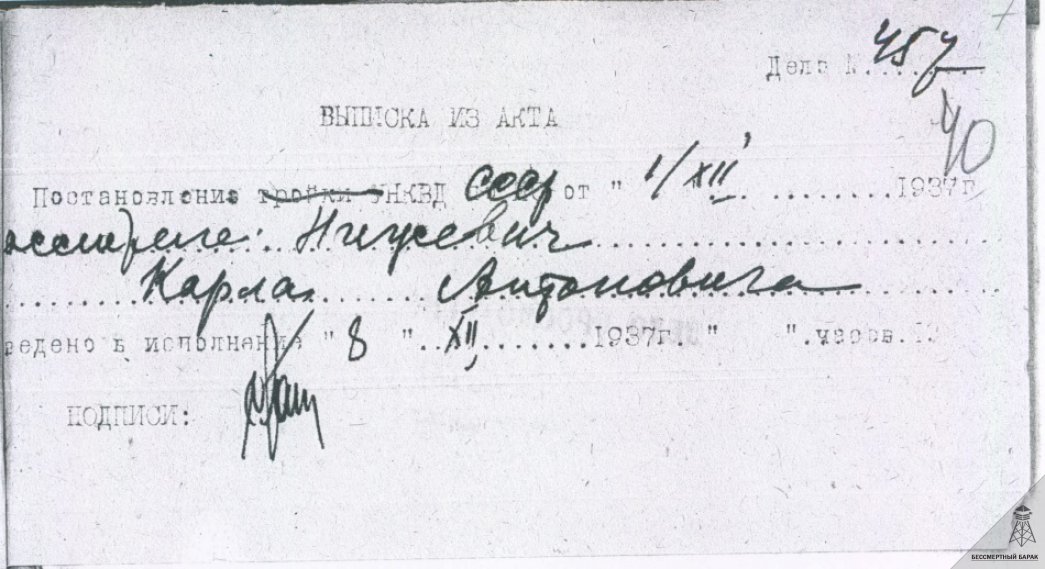 Дело №..457
40
ВЫПИСКА ИЗ АКТА
Постановление тройки УНКВД СССР от " 1/XII ..........1937г.
асстреле:
Карла Антоновича
ведено в исполнение " 8 "..XII.......1937г." ".часов.
ПОДПИСИ:
БЕССМЕРТНЫЙ БАРАК